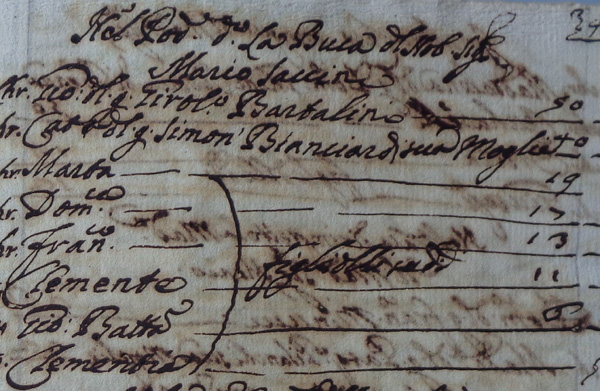 Nel Pod.e d.o La Buca d'l Nob Sig.r
Mario Saccini
hr. Gio: d'l q. Girol.o Bartalini 50
hr. Cat d'l q. Simon' Bianciardi sua Moglie 40
hr. Marta 19
hr. Dom.co 17
hr. Fran.o 13
Clemente figlioli di d.i 11
Gio: Batta 6
Clementia